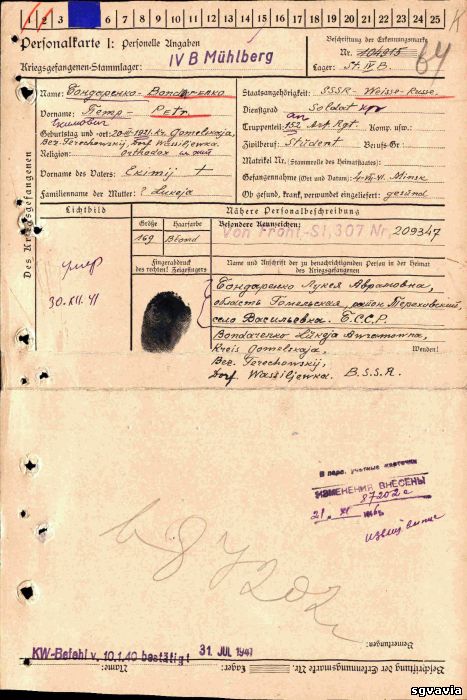 1 2 3 4 5 6 7 8 9 10 11 12 13 14 15 16 17 18 19 20 21 22 23 24 25
Personalkarte I: Personelle Angaben
Kriegsgefangenen-Stammlager: IV B Mühlberg
Beschriftung der Erkennungsmarke
Nr. 104915
Lager: St. IV B.
64
Des Kriegsgefangenen
Name: Бондаренко- Bondarenko
Vorname: Петр- Petr
Екимович
Geburtstag und -ort: 20. 1921. Kr. Gomelskaja,
Bez. Terechowskij, Dorf Wassiljewka.
Religion: Orthodox
Vorname des Vaters: Ekimij +
Familienname der Mutter: ? Lukeja
Staatsangehörigkeit: SSSR- Weisse-Russe.
Dienstgrad: Soldat
Truppenteil: 152 Art. Rgt. Komp. usw.:
Zivilberuf: Student Berufs-Gr.:
Matrikel Nr. (Stammrolle des Heimatstaates):
Gefangennahme (Ort und Datum): 4.VII.41. Minsk
Ob gesund, krank, verwundet eingeliefert: gesund
Lichtbild
умер
30.XII.41
Nähere Personalbeschreibung
Größe Haarfarbe Besondere Kennzeichen:
169 Blond Von Front-St. 307 Nr. 209347
Fingerabdruck
des rechten! Zeigefingers
Name und Anschrift der zu benachrichtigenden Person in der Heimat
des Kriegsgefangenen
Бондаренко Лукея Аврамовна,
область Гомельская, район Тереховский
село Васильевка. Б.С.С.Р.
Bondarenko Lukeja
Kreis Gomelskaja,
Wenden!
Bez. Terechowskij,
Dorf. Wassiljewka. B.S.S.R.
В перс. учетные карточки
ИЗМЕНЕНИЯ ВНЕСЕНЫ
87202с
21. XI 1946
87202
Bemerkungen:
KW-Befehl v. 10.1.40 bestätigt 31. JUL 1941
Beschriftung der Erkennungsmarke Nr. Lager: Name:
sgvavia